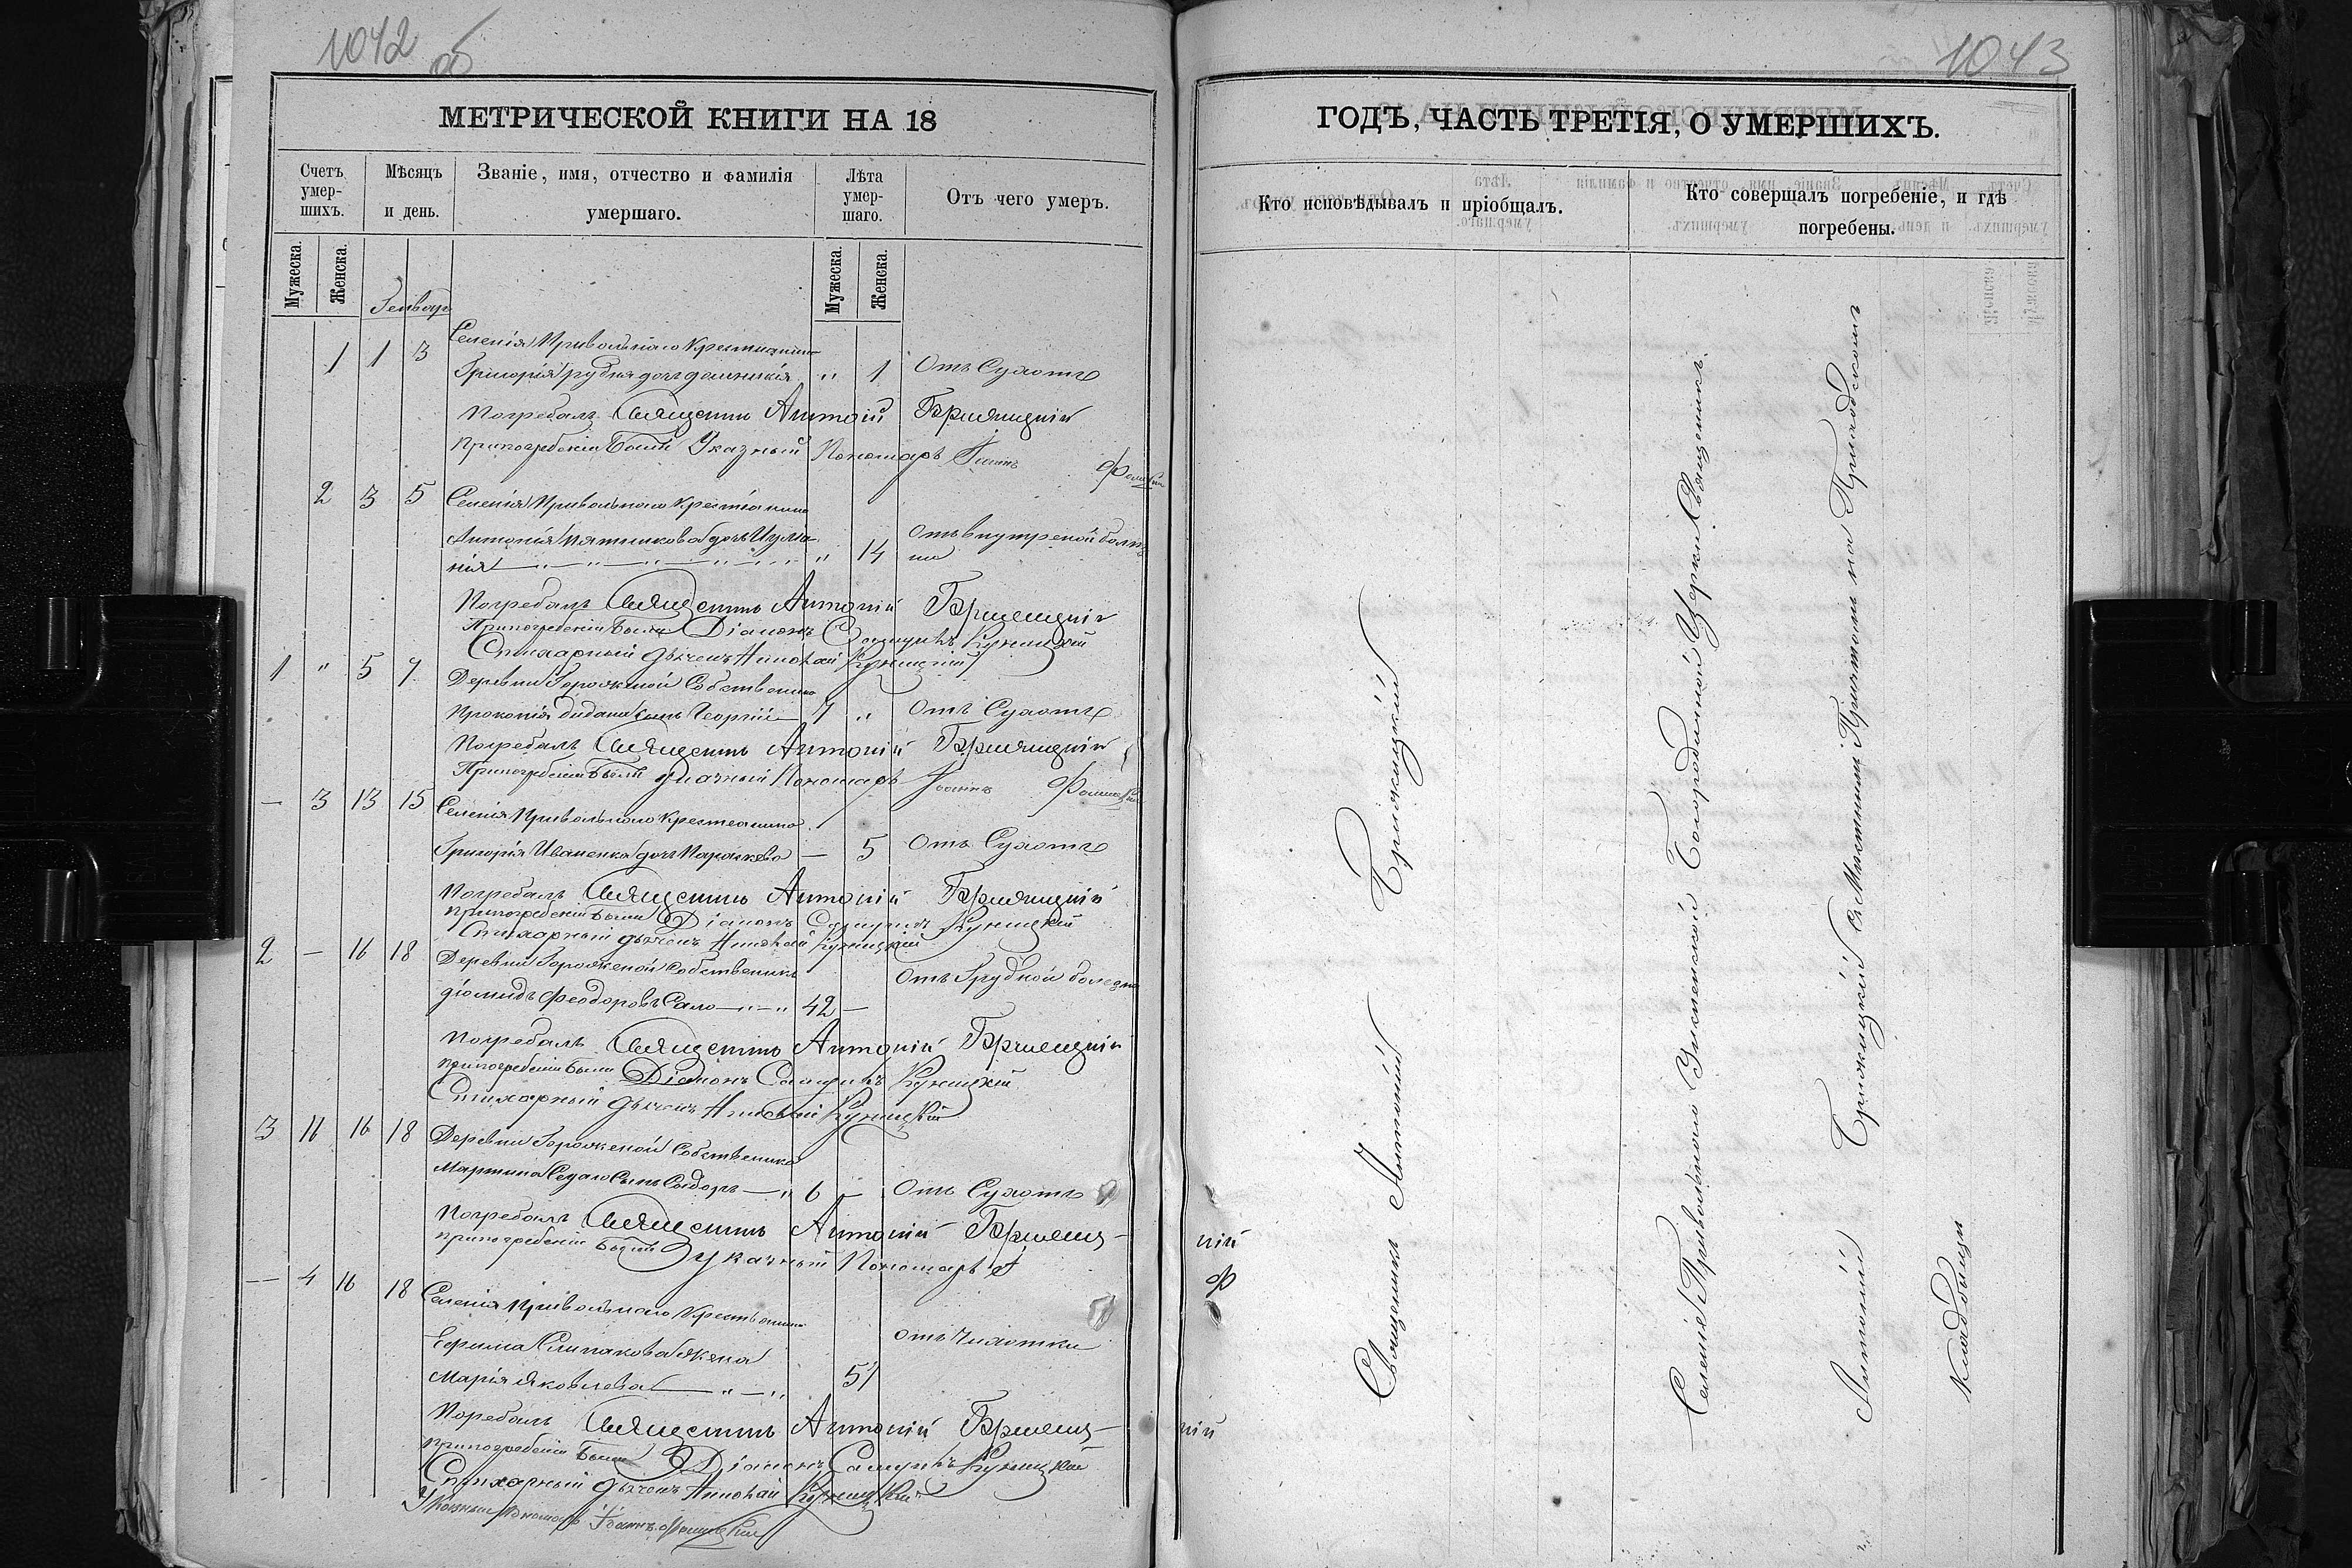 1042
об
МЕТРИЧЕСКОЙ КНИГИ НА 18
Счетъ умер-шихъ.
Мѣсяцъ и день.
Званіе, имя, отчество и фамилія умершаго.
Лѣта умер-шаго.
Отъ чего умеръ.
Мужеска.
Женска.
Мужеска.
Женска.
Генвар
Селенія Привольнаго Крестианина
1 1 3 Григорія дочь " 1 Отъ Сухоты
Погребалъ Священникъ Антоній
При погребеніи были Указный Пономарь Іоаннъ
2 3 5 Селенія Привольнаго Крестіанина
Антонія Пятникова дочь Иулиа
нія " 14 Отъ внутреной болѣз
ни
Погребалъ Священникъ Антоній
При погребеніи были Діаконъ Самуилъ Куницкій
Стихарный дьячекъ Николай Куницкій
1 " 5 7 Деревни Горожены Собственника
Прокопія сынъ Георгій 7 " Отъ Сухоты
Погребалъ Священникъ Антоній
При погребеніи были Указный Пономарь Іоаннъ
— 3 13 15 Селенія Привольнаго Крестеанина
Григорія Иваненка дочь Параскева — 5 Отъ Сухоты
Погребалъ Священникъ Антоній
При погребеніи были Діаконъ Самуилъ Куницкій
Стихарный дьячекъ Николай Куницкій
2 — 16 18 Деревни Горожены Собственникъ
Діомидъ Феодоровъ Сало 42 — Отъ Грудной болезни
Погребалъ Священникъ Антоній
При погребеніи были Діаконъ Самуилъ Куницкій
Стихарный дьячекъ Николай Куницкій
3 11 16 18 Деревни Горожены Собственника
Мартина сынъ Сидоръ 6 — Отъ Сухоты
Погребалъ Священникъ Антоній
При погребеніи были Указный Пономарь І
— 4 16 18 Селенія Привольнаго Крестьянина
Ефима Слипакова жена
Марія Яковлева 57 Отъ Чихотки
Погребалъ Священникъ Антоній
При погребеніи были Діаконъ Самуилъ Куницкій
Стихарный дьячекъ Николай Куницкій
Указный Пономарь Іоаннъ
1043
ГОДЪ, ЧАСТЬ ТРЕТІЯ, О УМЕРШИХЪ.
Кто исповѣдывалъ и пріобщалъ.
Кто совершалъ погребеніе, и гдѣ погребены.
Священникъ Антоній
Селенія Привольнаго Успенской Богородичной Церкви Священникъ
Антоній съ Мѣстнымъ Причтомъ на Приходскомъ
Кладбищи